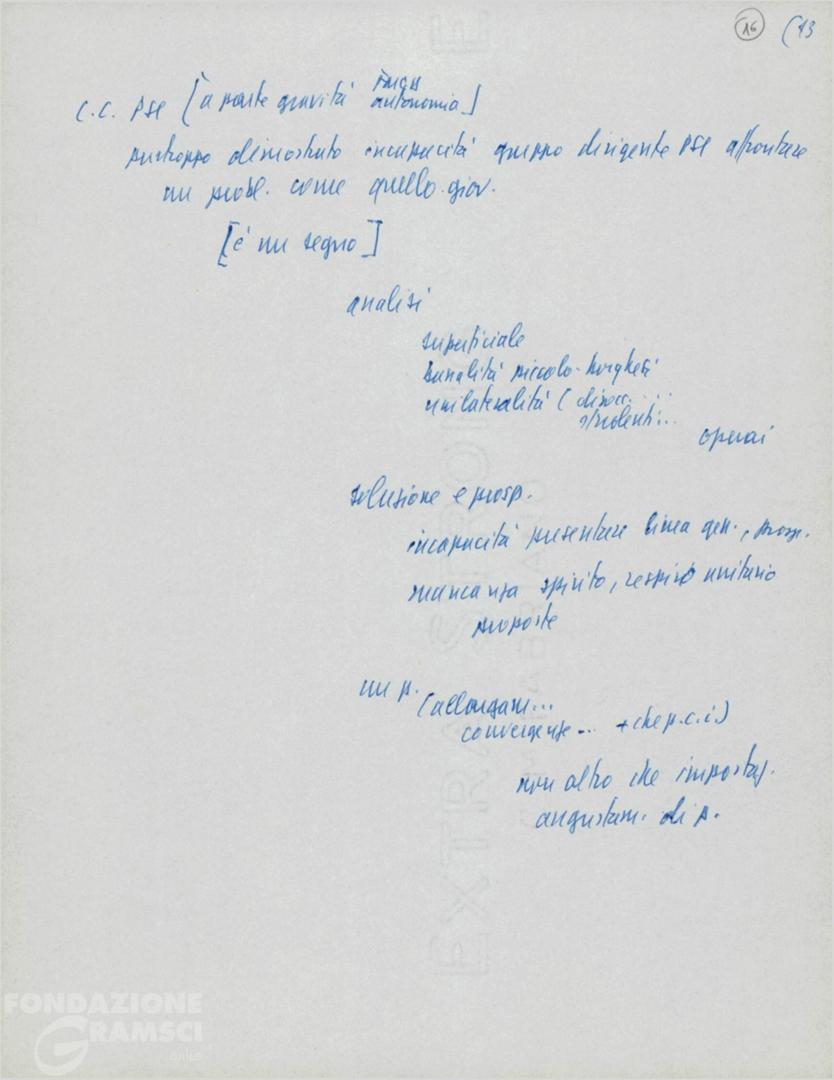 16 (13
C.C. PSI [a parte gravità FMGS
autonomia]
purtroppo dimostrato incapacità gruppo dirigente PSI affrontare
un probl. come quello giov.
[è un segno]
analisi
superficiale
banalità piccolo-borghesi
unilateralità (disocc. ...
studenti...
operai
soluzione e prosp.
incapacità presentare linea gen., prosp.
mancanza spirito, respiro unitario
proposte
un p.
(allungam...
convergenze... + che p.c.i.)
non altro che impostaz.
angustam. di p.
EXTRA STRONG
FABRIANO
FONDAZIONE
GRAMSCI
onlus